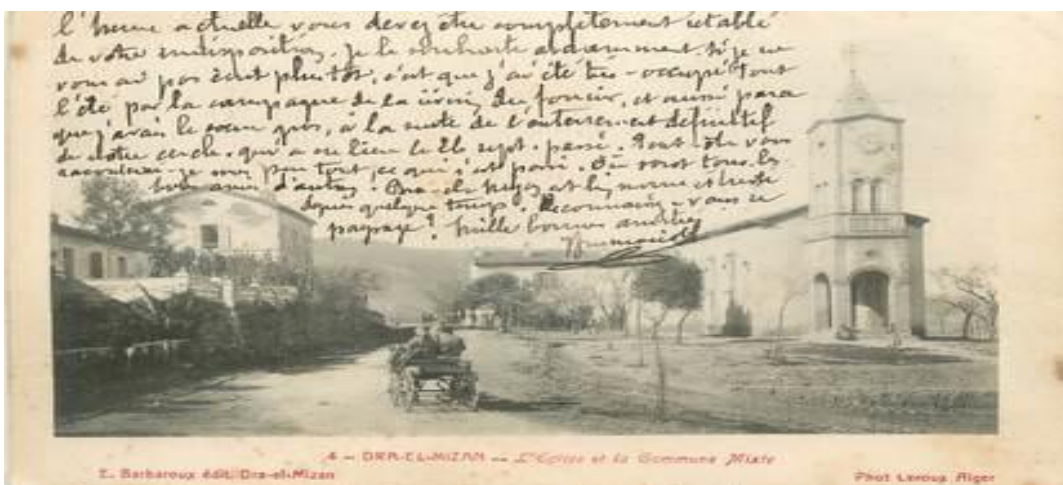 l'heure actuelle vous devez être complètement rétabli
de votre indisposition, je le souhaite ardemment. Si je ne
vous ai pas écrit plutôt, c'est que j'ai été très-occupé tout
l'été par la campagne de la du foncier, et aussi parce
que j'avais le cœur gros, à la suite de l'enterrement définitif
de notre cercle, qui a eu lieu le 26 sept. passé. Peut-être vous
je un peu tout ce qui s'est passé. Où sont tous les
bons amis d'antan. Dra-el-Mizan est bien morne et triste
depuis quelque temps. Reconnaissez-vous ce
paysage? Mille bonnes amitiés
4 - DRA-EL-MIZAN - L'Eglise et la Commune Mixte
E. Barbaroux édit. Dra-el-Mizan
Phot Leroux Alger